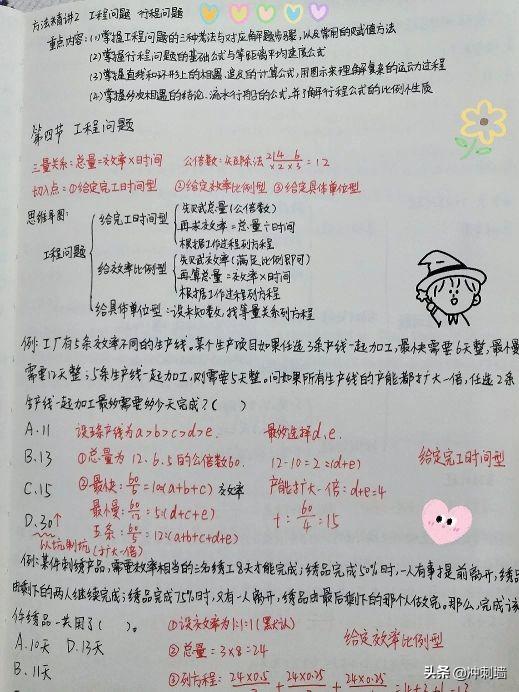 方法精讲2 工程问题 行程问题
重点内容:(1)掌握工程问题的三种考法与对应解题步骤,以及常用的赋值方法
(2)掌握行程问题的基础公式与等距离平均速度公式
(3)掌握直线和环形上的相遇、追及的计算公式,用图示来理解复杂的运动过程
(4)掌握多次相遇的结论、流水行船的公式,并了解行程公式的比例性质
第四节 工程问题
三量关系:总量=效率×时间 公倍数:短除法 2|4 6 ×2×3=12
切入点:①给定完工时间型 ②给定效率比例型 ③给定具体单位型
思维导图:
工程问题
给完工时间型
先赋总量(公倍数)
再求效率=总量÷时间
根据工作过程列方程
给效率比例型
先赋效率(满足比例即可)
再算总量=效率×时间
根据工作过程列方程
给具体单位型:设未知数,找等量关系列方程
例:工厂有5条效率不同的生产线。某个生产项目如果任选3条产线一起加工,最快需要6天整,最慢
需要12天整;5条生产线一起加工,则需要5天整。问如果所有生产线的产能都扩大一倍,任选2条
生产线一起加工最多需要多少天完成?( )
A.11 设5条产线为a>b>c>d>e. 最多选择d、e.
B.13 ①总量为12、6、5的公倍数60. 12-10=2=(d+e)
给定完工时间型
C.15 ②最快:60/6=10(a+b+c) 效率 产能扩大一倍:d+e=4
最慢:60/12=5(d+c+e) t=60/4=15
D.30↑ 五条:60/5=12(a+b+c+d+e)
以坑制坑(扩大一倍)
例:某件刺绣产品,需要效率相当的三名绣工8天才能完成;绣品完成50%时,一人有事提前离开,绣品
由剩下的两人继续完成;绣品完成75%时,又有一人离开,绣品由最后剩下的那个人做完。那么,完成该
件绣品一共用了( )。 ①设效率为1:1:1(默认)
给定效率比例型
A.10天 D.13天 ②总量=3×8=24
B.11天 ③列方程:24×0.5 + 24×0.25 + 24×0.25
头条@冲刺墙